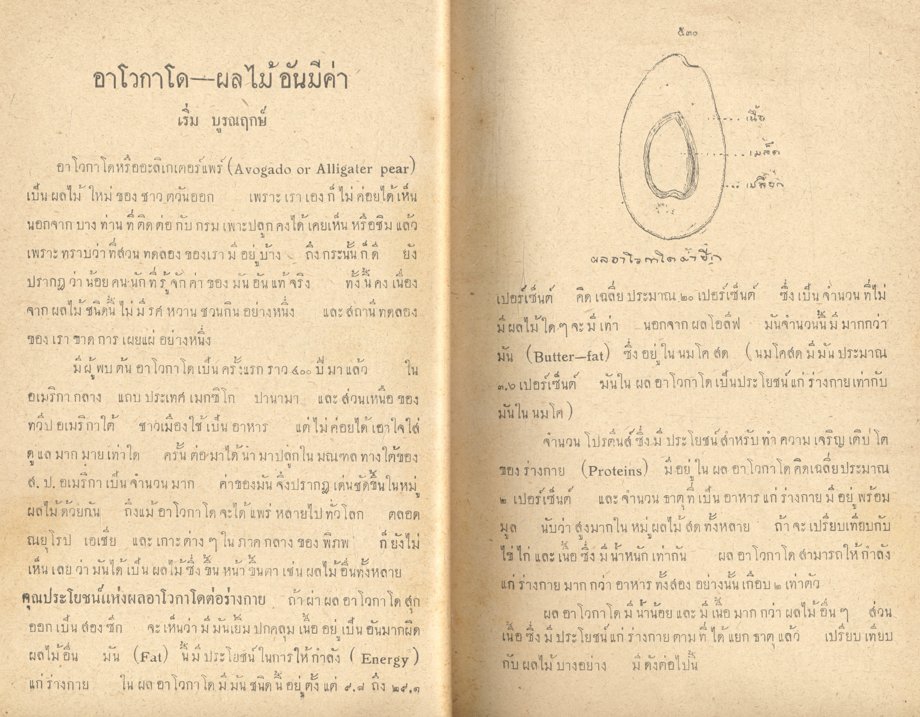 อาโวกาโด—ผลไม้อันมีค่า
เริ่ม บูรณฤกษ์
อาโวกาโดหรืออะลิเกเตอร์แพร์ (Avogado or Alligater pear)
เป็นผลไม้ใหม่ของชาวตวันออก เพราะเราเองก็ไม่ค่อยได้เห็น
นอกจากบางท่านที่ติดต่อกับกรมเพาะปลูกคงได้เคยเห็นหรือชิมแล้ว
เพราะทราบว่าที่สวนทดลองของเรามีอยู่บ้าง ถึงกระนั้นก็ดี ยัง
ปรากฏว่าน้อยคนนักที่รู้จักค่าของมันอันแท้จริง ทั้งนี้คงเนื่อง
จากผลไม้ชนิดนี้ไม่มีรศหวานชวนกินอย่างหนึ่ง และสถานีทดลอง
ของเราขาดการเผยแผ่อย่างหนึ่ง
มีผู้พบต้นอาโวกาโดเป็นครั้งแรกราว ๔๐๐ ปีมาแล้ว ใน
อเมริกากลาง แถบประเทศเมกซิโก ปานามา และส่วนเหนือของ
ทวีปอเมริกาใต้ ชาวเมืองใช้เป็นอาหาร แต่ไม่ค่อยได้เอาใจใส่
ดูแลมากมายเท่าใด ครั้นต่อมาได้นำมาปลูกในมณฑลทางใต้ของ
ส. ป. อเมริกาเป็นจำนวนมาก ค่าของมันจึงปรากฏเด่นชัดขึ้นในหมู่
ผลไม้ด้วยกัน ถึงแม้อาโวกาโดจะได้แพร่หลายไปทั่วโลก ตลอด
ณยุโรป เอเชีย และเกาะต่าง ๆ ในภาคกลางของพิภพ ก็ยังไม่
เห็นเลยว่ามันได้เป็นผลไม้ซึ่งขึ้นหน้าขึ้นตาเช่นผลไม้อื่นทั้งหลาย
คุณประโยชน์แห่งผลอาโวกาโดต่อร่างกาย ถ้าผ่าผลอาโวกาโดสุก
ออกเป็นสองซีก จะเห็นว่ามีมันเยิ้มปกคลุมเนื้ออยู่เป็นอันมากผิด
ผลไม้อื่น มัน (Fat) นี้มีประโยชน์ในการให้กำลัง (Energy)
แก่ร่างกาย ในผลอาโวกาโดมีมันชนิดนี้อยู่ตั้งแต่ ๙.๘ ถึง ๒๙.๑
๕๓๐
เนื้อ
เมล็ด
เปลือก
ผลอาโวกาโดผ่าซีก
เปอร์เซ็นต์ คิดเฉลี่ยประมาณ ๒๐ เปอร์เซ็นต์ ซึ่งเป็นจำนวนที่ไม่
มีผลไม้ใด ๆ จะมีเท่า นอกจากผลโอลีฟ มันจำนวนนี้มีมากกว่า
มัน (Butter—fat) ซึ่งอยู่ในนมโคสด (นมโคสดมีมันประมาณ
๓.๖ เปอร์เซ็นต์ มันในผลอาโวกาโดเป็นประโยชน์แก่ร่างกายเท่ากับ
มันในนมโค)
จำนวนโปรตีนส์ซึ่งมีประโยชน์สำหรับทำความเจริญเติบโต
ของร่างกาย (Proteins) มีอยู่ในผลอาโวกาโดคิดเฉลี่ยประมาณ
๒ เปอร์เซ็นต์ และจำนวนธาตุที่เป็นอาหารแก่ร่างกายมีอยู่พร้อม
มูล นับว่าสูงมากในหมู่ผลไม้สดทั้งหลาย ถ้าจะเปรียบเทียบกับ
ไข่ไก่และเนื้อซึ่งมีน้ำหนักเท่ากัน ผลอาโวกาโดสามารถให้กำลัง
แก่ร่างกายมากกว่าอาหารทั้งสองอย่างนั้นเกือบ ๒ เท่าตัว
ผลอาโวกาโดมีน้ำน้อยและมีเนื้อมากกว่าผลไม้อื่น ๆ ส่วน
เนื้อซึ่งมีประโยชน์แก่ร่างกายตามที่ได้แยกธาตุแล้ว เปรียบเทียบ
กับผลไม้บางอย่าง มีดังต่อไปนี้